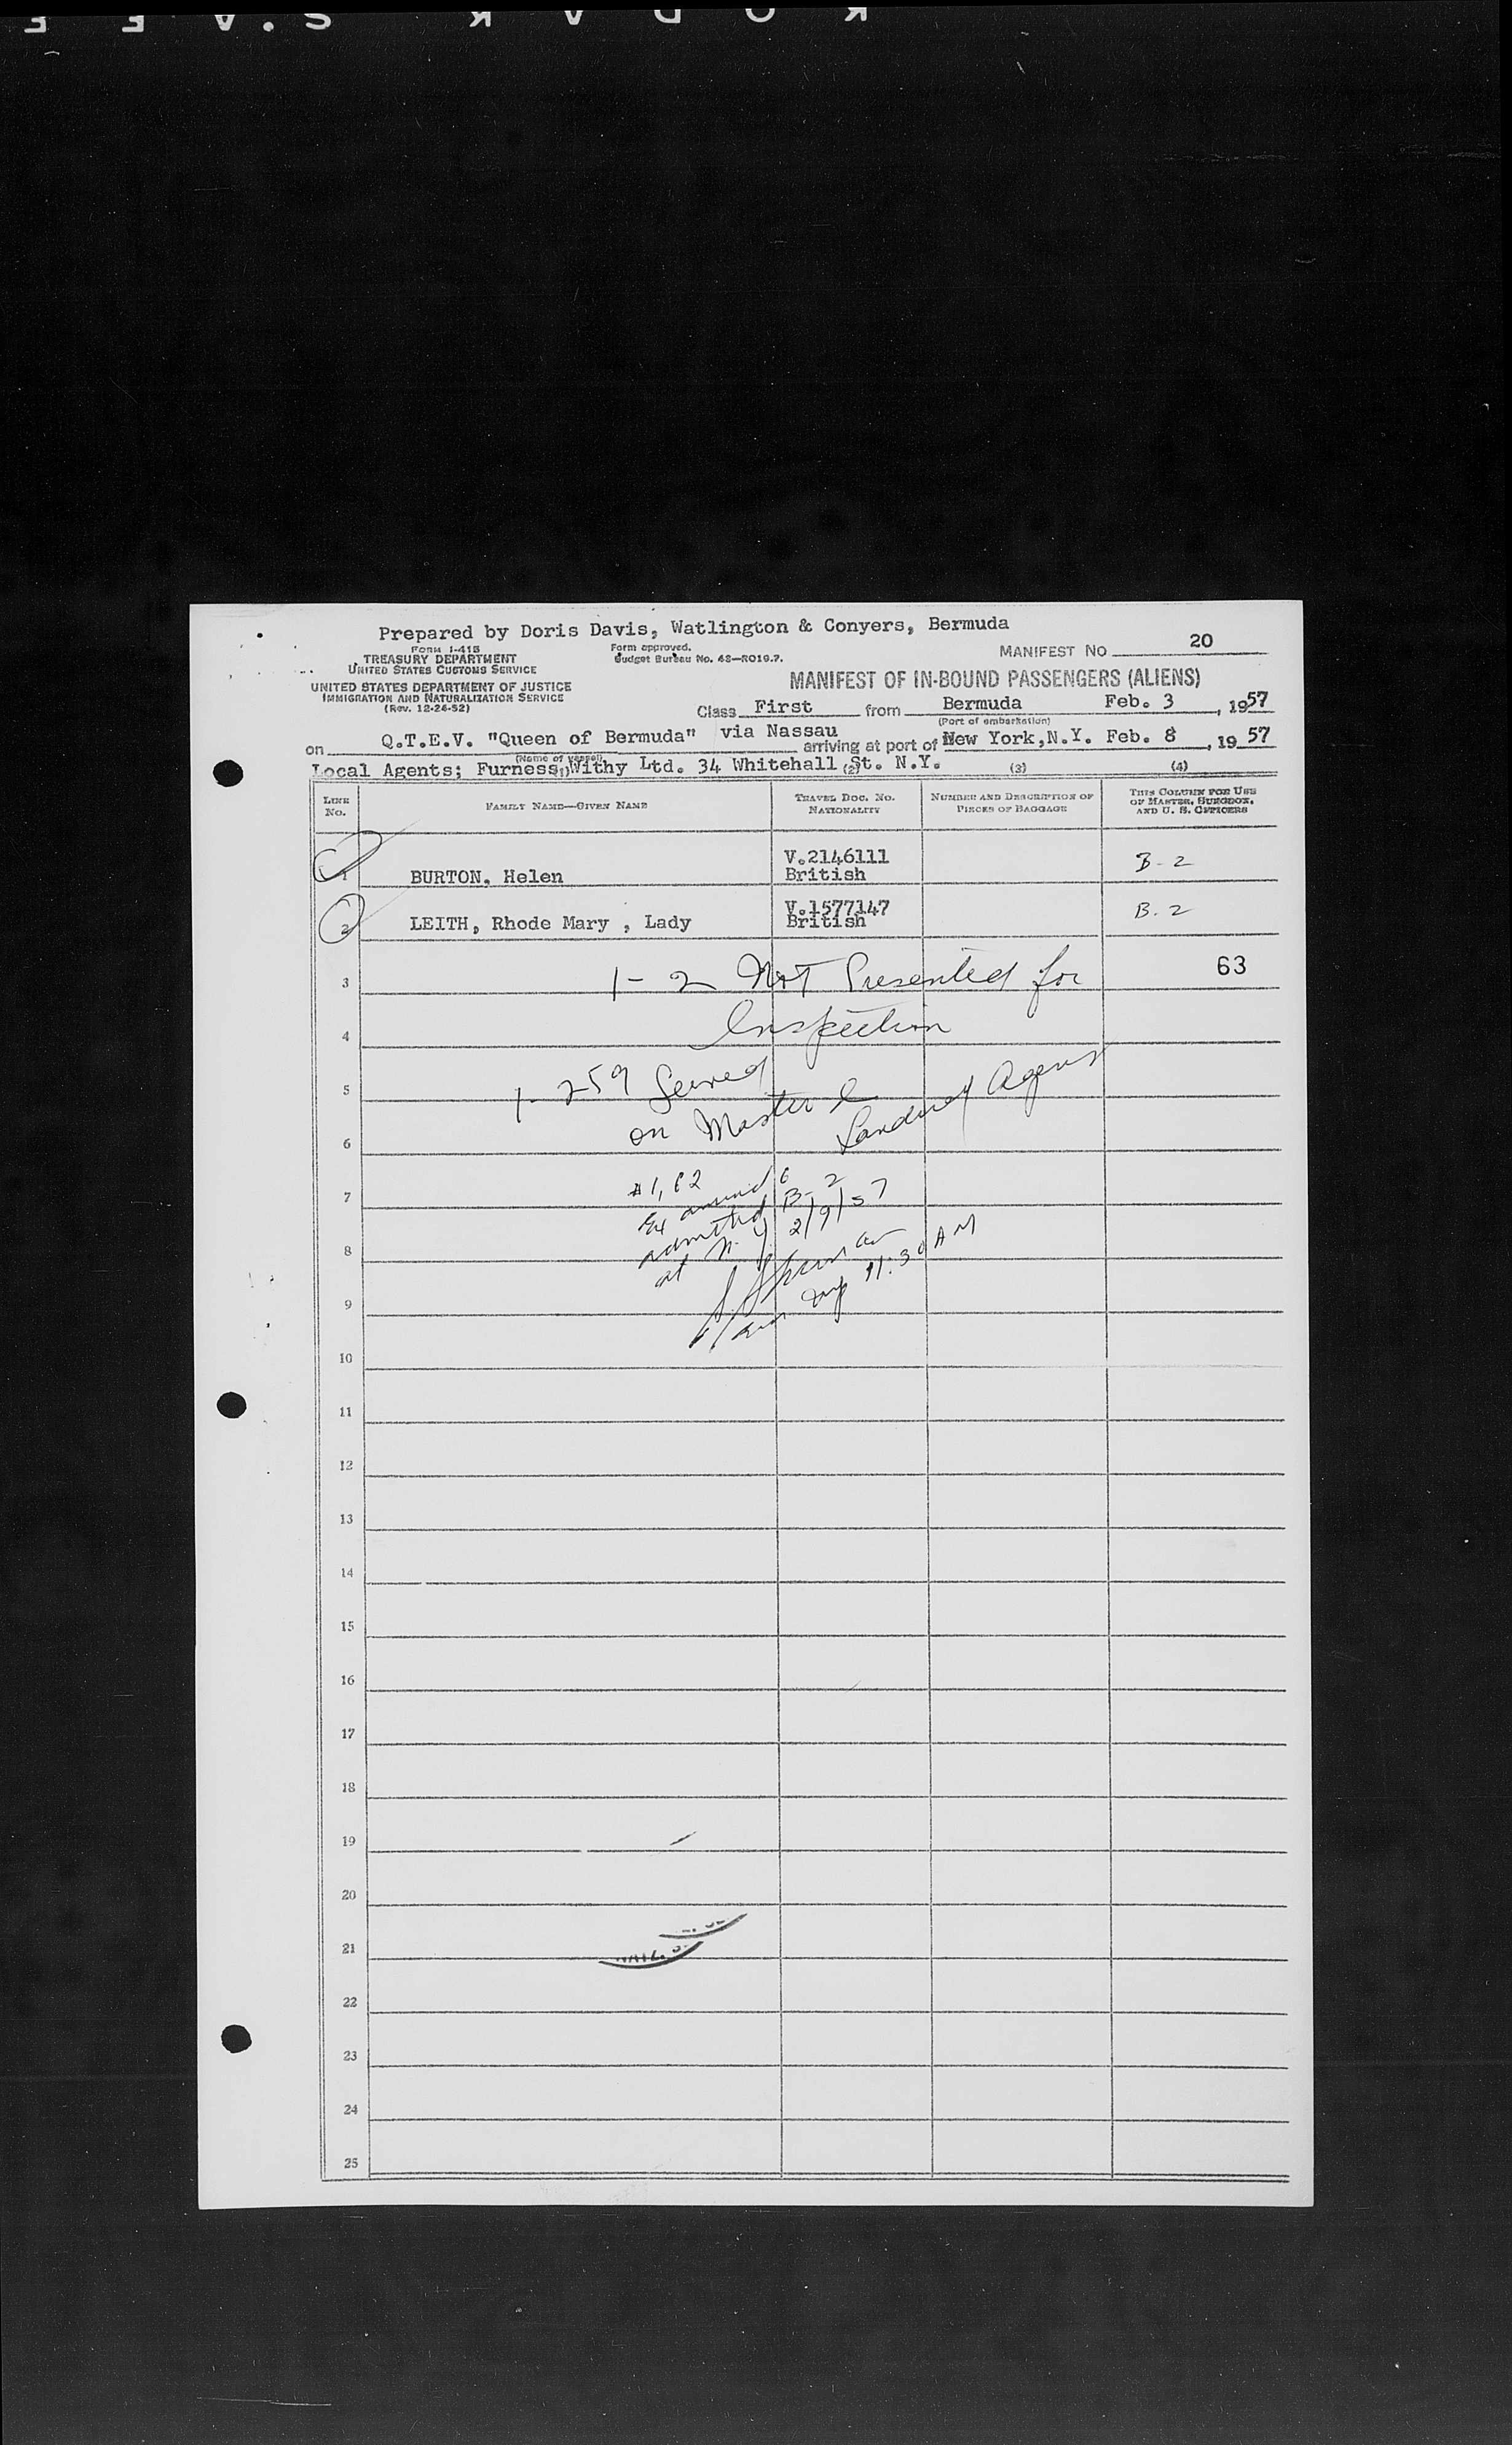 KODAK S.AFE
Prepared by Doris Davis, Watlington & Conyers, Bermuda
Form I-415
TREASURY DEPARTMENT
UNITED STATES CUSTOMS SERVICE
UNITED STATES DEPARTMENT OF JUSTICE
IMMIGRATION AND NATURALIZATION SERVICE
(Rev. 12-24-52)
Form approved.
Budget Bureau No. 43—R019.7.
MANIFEST NO 20
MANIFEST OF IN-BOUND PASSENGERS (ALIENS)
Class First from Bermuda Feb. 3, 1957
(Port of embarkation)
on Q.T.E.V. "Queen of Bermuda" via Nassau arriving at port of New York,N.Y. Feb. 8, 1957
(Name of vessel)
Local Agents; Furness, Withy Ltd. 34 Whitehall St. N.Y.
(1) (2) (3) (4)
LINE NO. FAMILY NAME—GIVEN NAME TRAVEL DOC. NO. NATIONALITY NUMBER AND DESCRIPTION OF PIECES OF BAGGAGE THIS COLUMN FOR USE OF MASTER, SURGEON, AND U. S. OFFICERS
1 BURTON, Helen V.2146111 British B-2
2 LEITH, Rhode Mary , Lady V.1577147 British B.2
3 1-2 Not Presented for 63
4 Inspection
5 1-259 Served
6 on Master &
7 #1, & 2
admitted B-2
8 at N.Y 2/9/57
11:30 AM
9
10
11
12
13
14
15
16
17
18
19
20
21
22
23
24
25